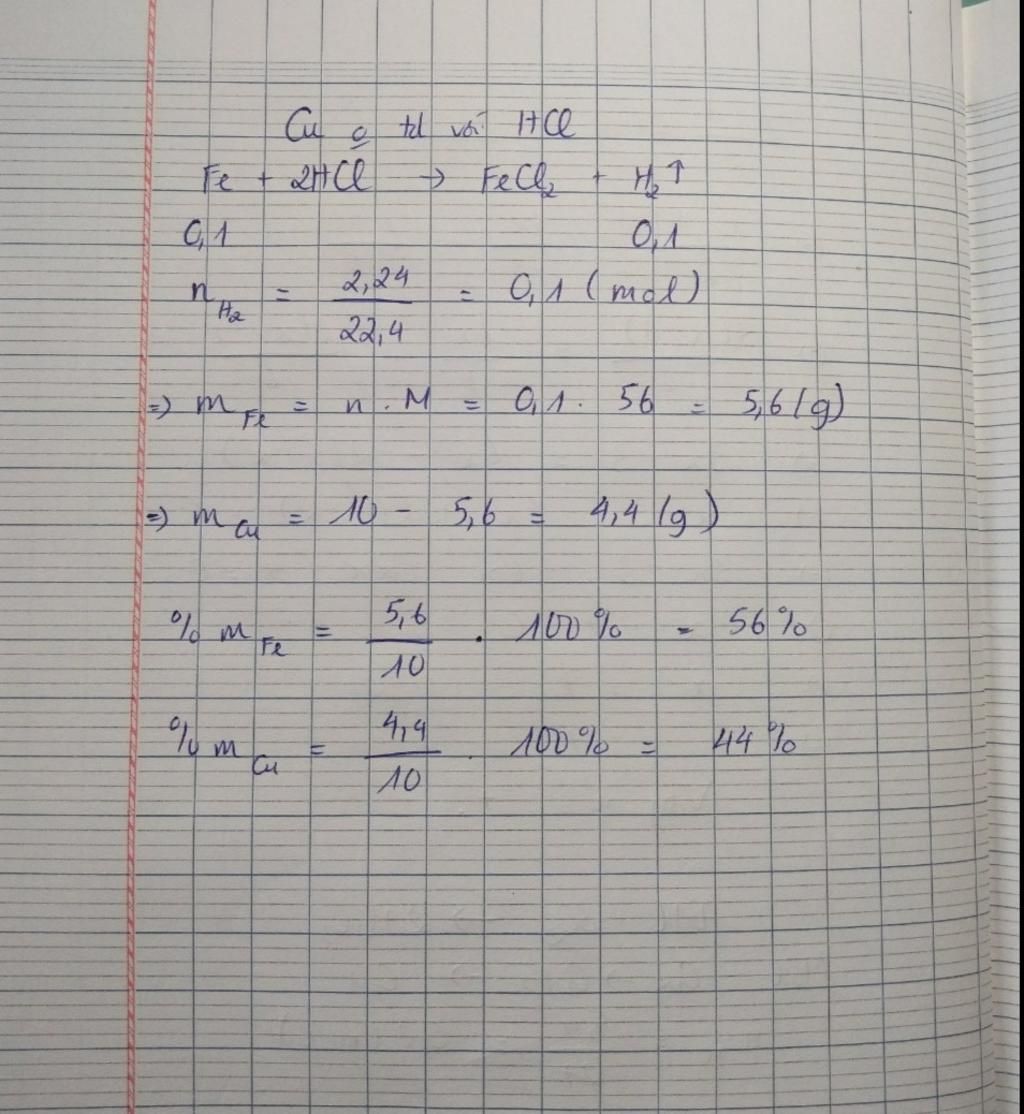 Cu o td với HCl
Fe + 2HCl → FeCl₂ + H₂↑
0,1 0,1
n H₂ = 2,24 / 22,4 = 0,1 (mol)
=> m Fe = n . M = 0,1 . 56 = 5,6 (g)
=> m Cu = 10 - 5,6 = 4,4 (g)
% m Fe = 5,6 / 10 . 100% = 56%
% m Cu = 4,4 / 10 . 100% = 44%